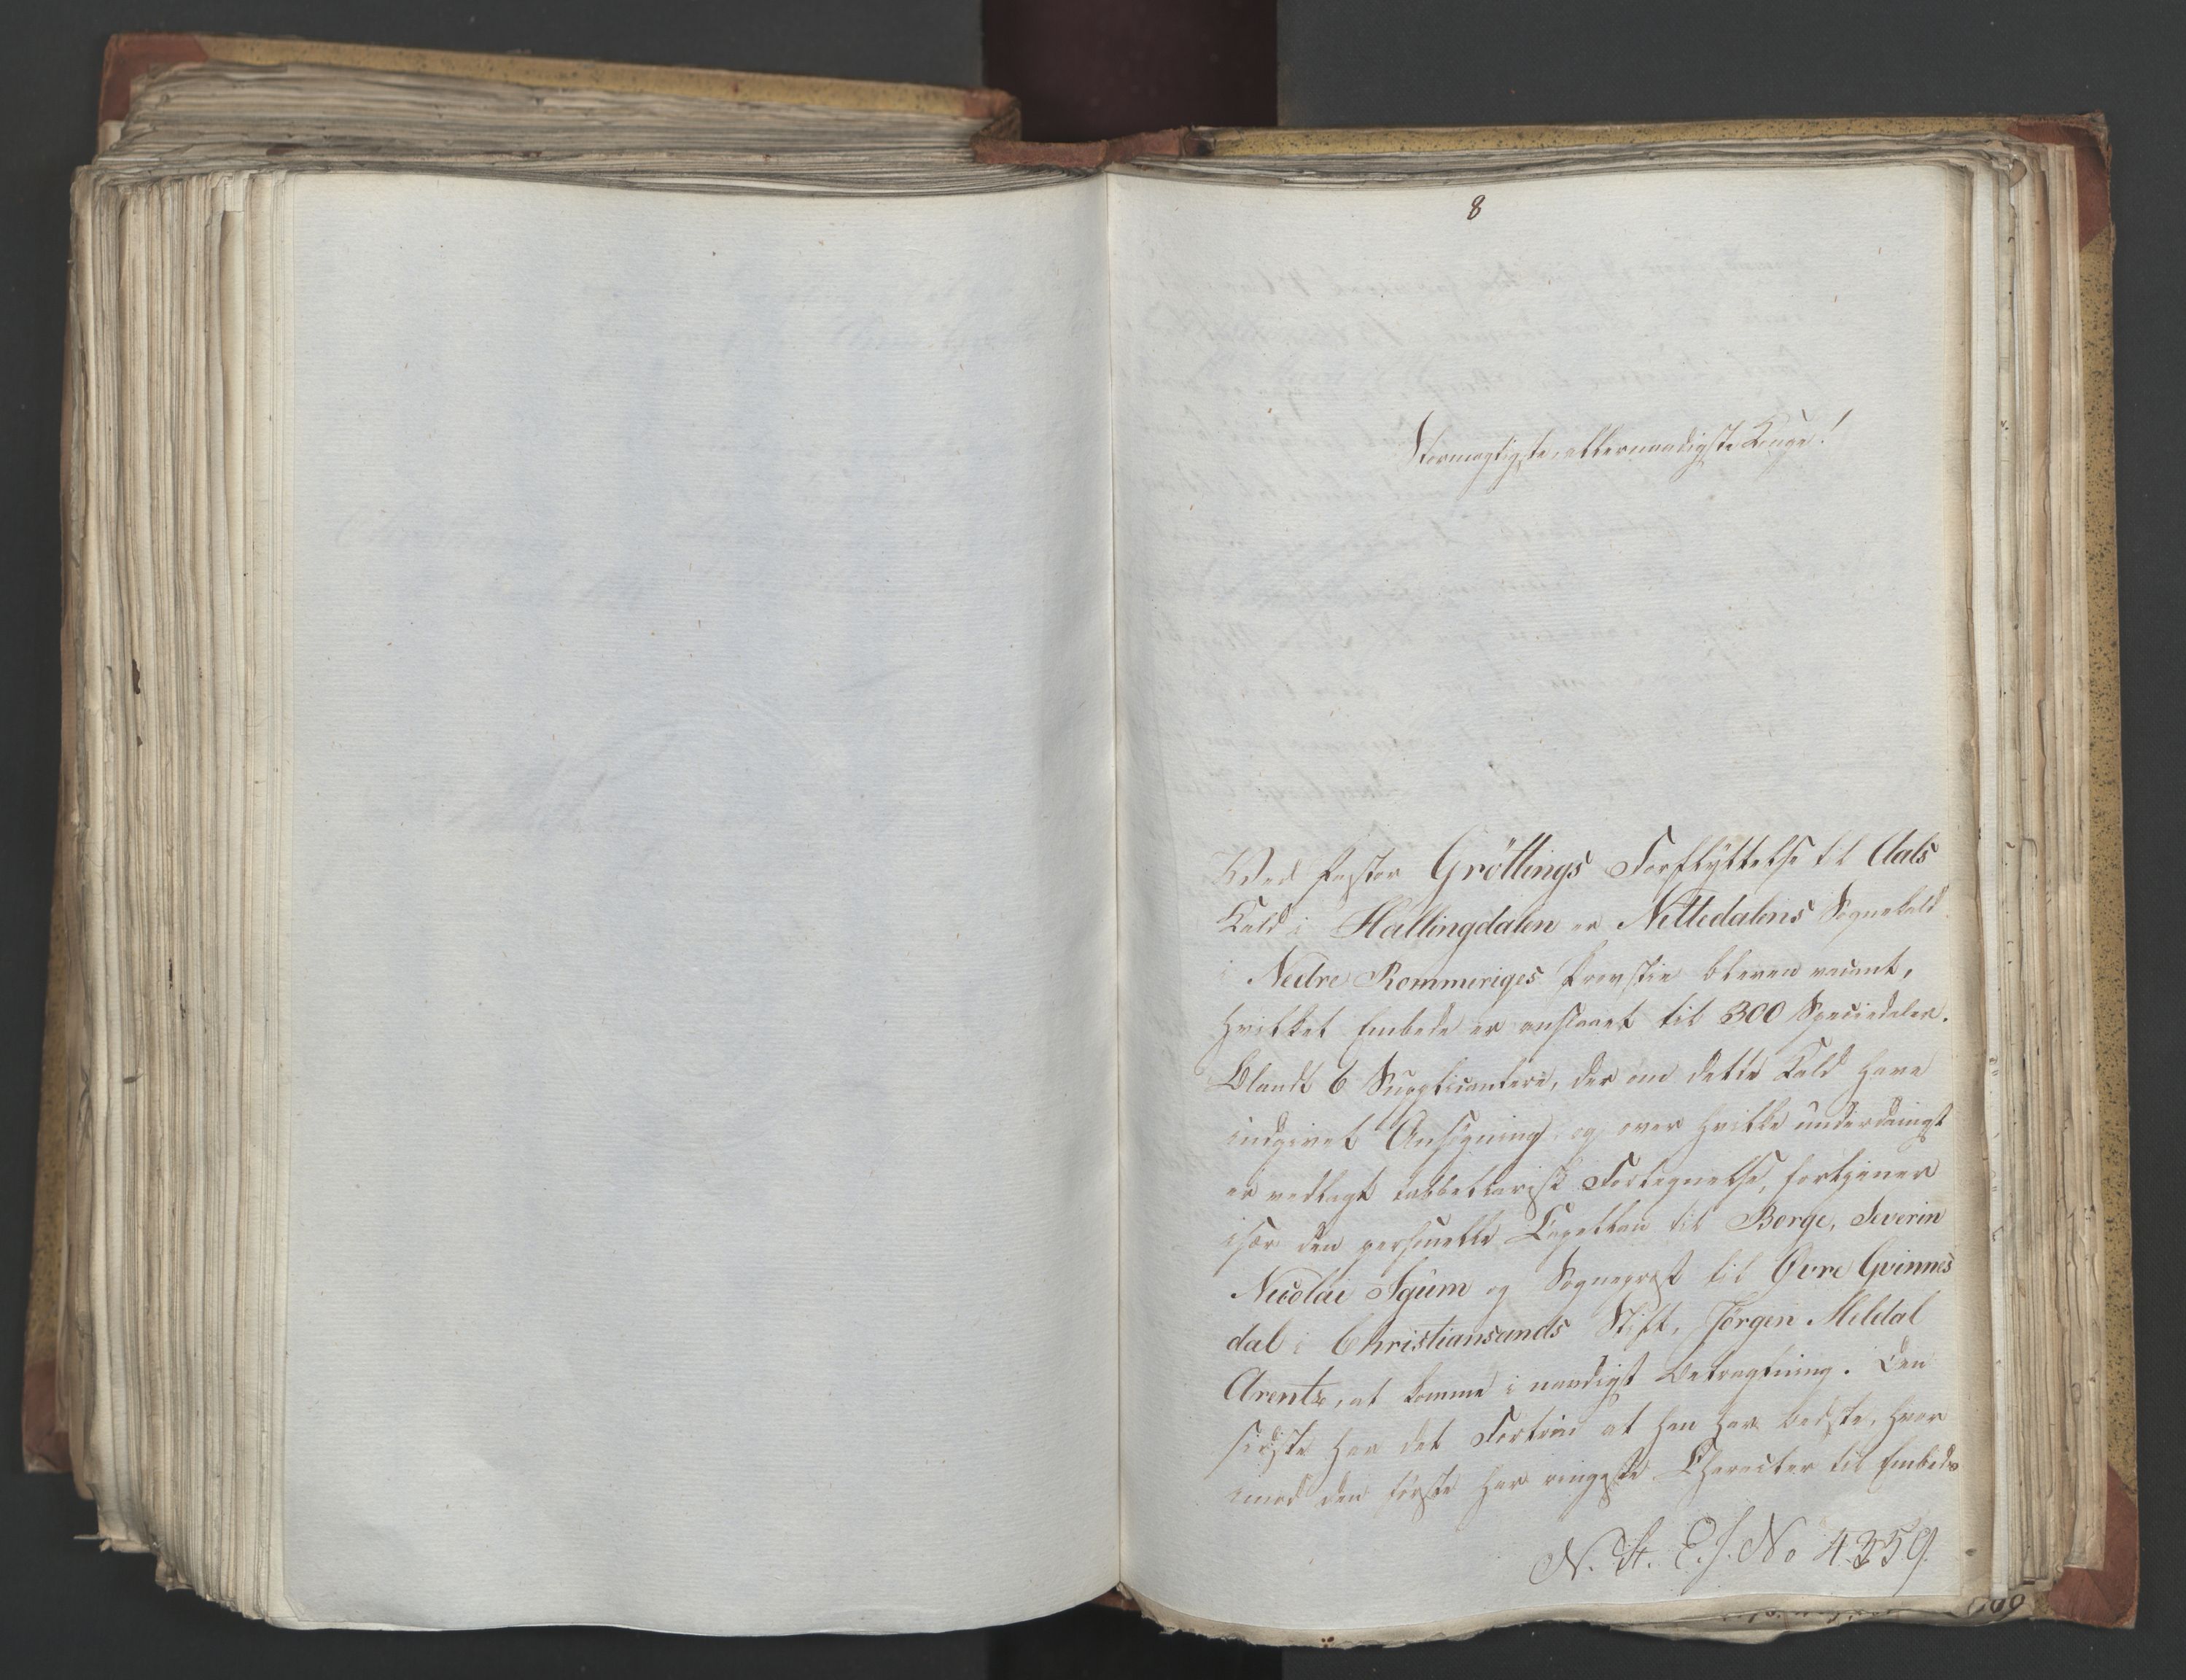 8
Stormægtigste, allernaadigste Konge!
Ved Pastor Gröttings Forflyttelse til Aals
Kald i Hallingdalen er Nittedalens Sognekald
i Nedre Rommeriges Provstie bleven vacant,
hvilket Embede er anslaaet til 300 Speciedaler.
Blandt 6 Supplicantere, der om dette Kald have
indgivet Ansøgning, og over hvilke underdanigst
er vedlagt tabbellarisk Fortegnelse, fortjener
især den personelle Capellan til Borge, Severin
Nicolai Sgum og Sognepræst til Øvre Qvinnes
dal i Christiansands Stift, Jørgen Meldal
Arentz, at komme i naadigst Betragtning. Den
sidste har det Fortrin at han har bedste, hvor
imod den første har ringeste Character til Embeds
N. St. E. J. No 4359.